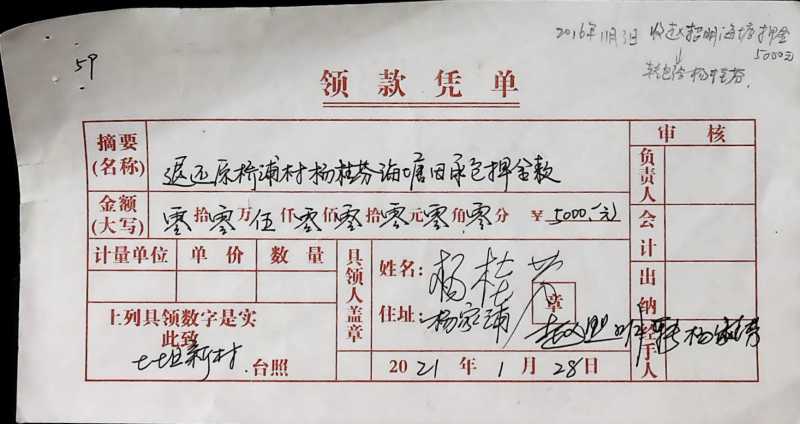 2016年11月3日 收赵招明海塘押金
5000元
转包给杨桂芬
59
领款凭单
摘要
(名称)
退还原桥浦村杨桂芬海塘田承包押金款
审核
负责人
金额
(大写)
零拾零万伍仟零佰零拾零元零角零分 ¥5000.元
会计
计量单位 单价 数量
具领人盖章
姓名: 杨桂芬
章
住址: 杨家浦
出纳
上列具领数字是实
此致
新村 台照
经手人
2021年1月28日